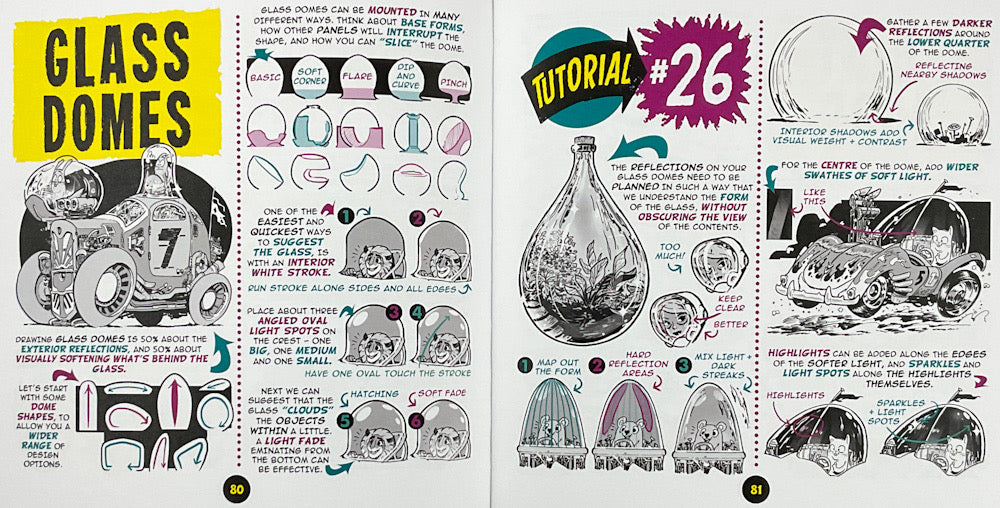 GLASS
DOMES
7
DRAWING GLASS DOMES IS 50% ABOUT THE
EXTERIOR REFLECTIONS, AND 50% ABOUT
VISUALLY SOFTENING WHAT'S BEHIND THE
GLASS.
LET'S START
WITH SOME
DOME
SHAPES, TO
ALLOW YOU A
WIDER
RANGE OF
DESIGN
OPTIONS.
GLASS DOMES CAN BE MOUNTED IN MANY
DIFFERENT WAYS. THINK ABOUT BASE FORMS,
HOW OTHER PANELS WILL INTERRUPT THE
SHAPE, AND HOW YOU CAN "SLICE" THE DOME.
BASIC
SOFT
CORNER
FLARE
DIP
AND
CURVE
PINCH
ONE OF THE
EASIEST AND
QUICKEST WAYS
TO SUGGEST
THE GLASS, IS
WITH AN INTERIOR
WHITE STROKE.
1
2
RUN STROKE ALONG SIDES AND ALL EDGES
PLACE ABOUT THREE
ANGLED OVAL
LIGHT SPOTS ON
THE CREST - ONE
BIG, ONE MEDIUM
AND ONE SMALL.
3
4
HAVE ONE OVAL TOUCH THE STROKE
NEXT WE CAN
SUGGEST THAT THE
GLASS "CLOUDS"
THE OBJECTS
WITHIN A LITTLE.
A LIGHT FADE
EMINATING FROM
THE BOTTOM CAN
BE EFFECTIVE.
HATCHING
SOFT FADE
5
6
80
TUTORIAL
#26
THE REFLECTIONS ON YOUR
GLASS DOMES NEED TO BE
PLANNED IN SUCH A WAY THAT
WE UNDERSTAND THE FORM
OF THE GLASS, WITHOUT
OBSCURING THE VIEW
OF THE CONTENTS.
TOO
MUCH!
KEEP
CLEAR
BETTER
1 MAP OUT
THE FORM
2 HARD
REFLECTION
AREAS
3 MIX LIGHT +
DARK
STREAKS
GATHER A FEW DARKER
REFLECTIONS AROUND
THE LOWER QUARTER
OF THE DOME.
REFLECTING
NEARBY SHADOWS
INTERIOR SHADOWS ADD
VISUAL WEIGHT + CONTRAST
FOR THE CENTRE OF THE DOME, ADD WIDER
SWATHES OF SOFT LIGHT.
LIKE
THIS
5
HIGHLIGHTS CAN BE ADDED ALONG THE EDGES
OF THE SOFTER LIGHT, AND SPARKLES AND
LIGHT SPOTS ALONG THE HIGHLIGHTS
THEMSELVES.
HIGHLIGHTS
SPARKLES
+ LIGHT
SPOTS
81